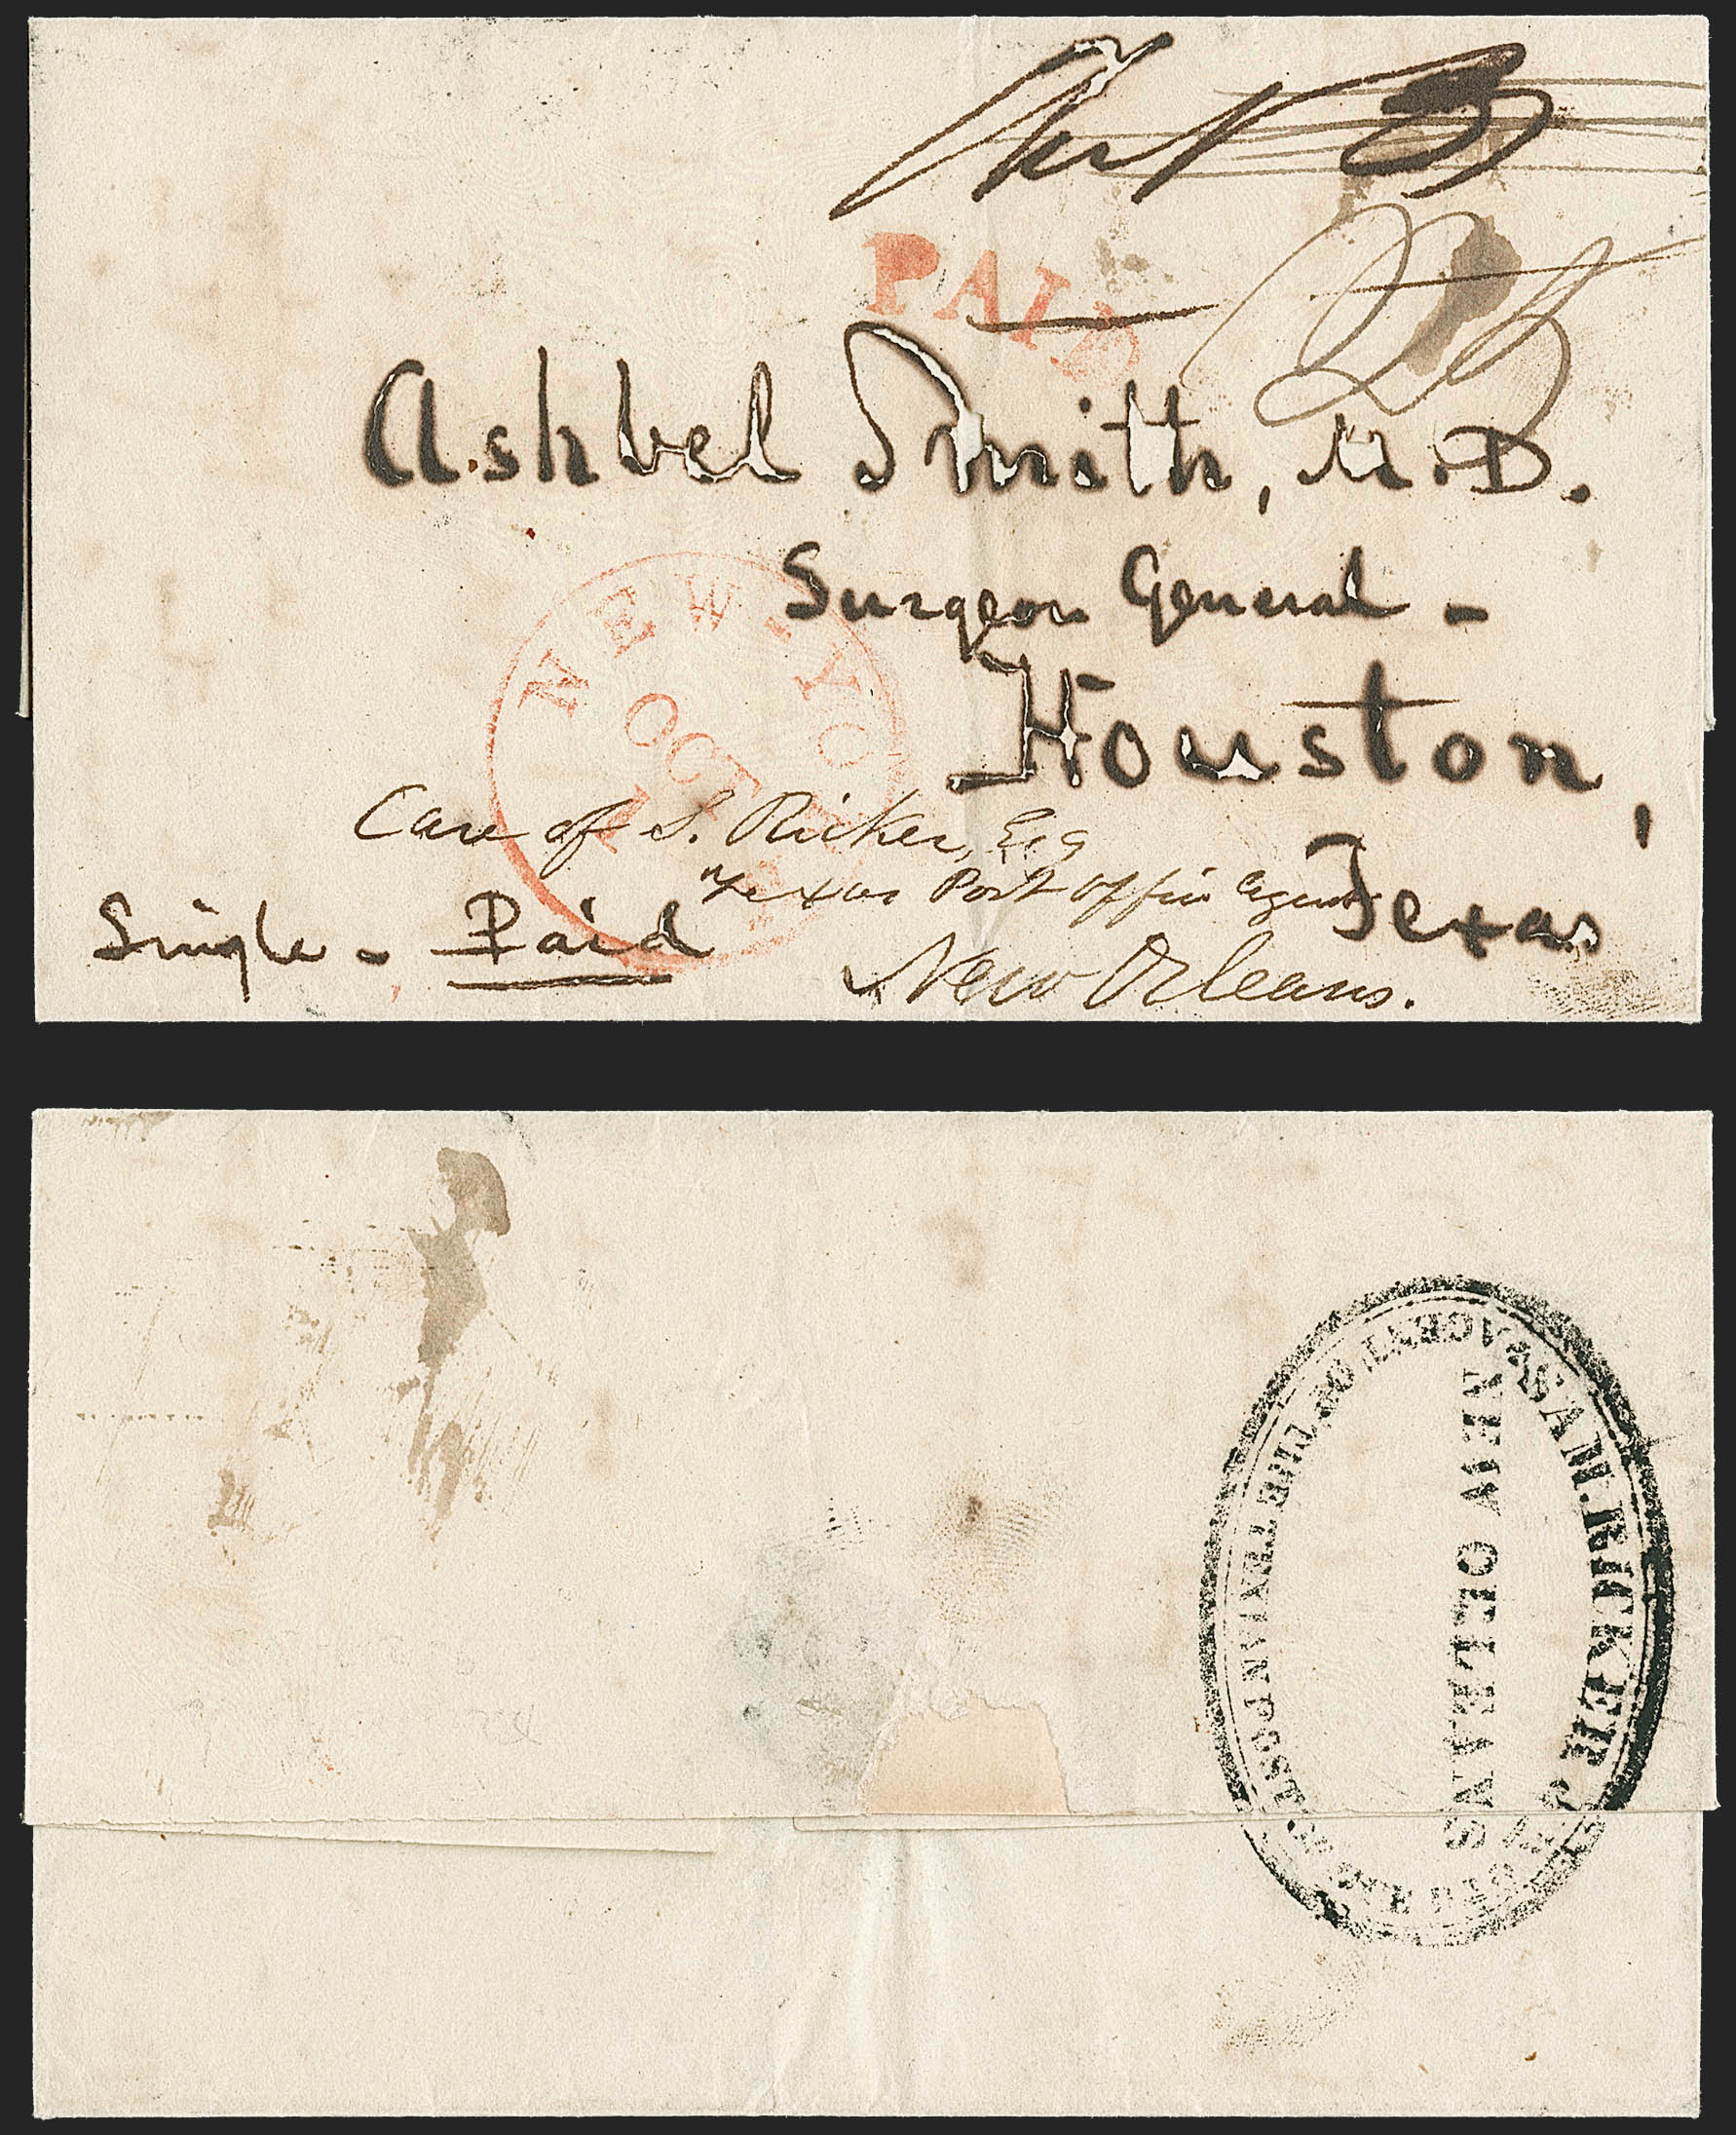 PAID
25
Ashbel Smith, M.D.
Surgeon General -
Houston,
Texas
NEW-YO
OCT
Care of S. Ricker, Esq
Texas Post Office Agent
New Orleans.
Single - Paid
SAM. RICKER
AGENT OF THE TEXIAN POST
NEW ORLEANS